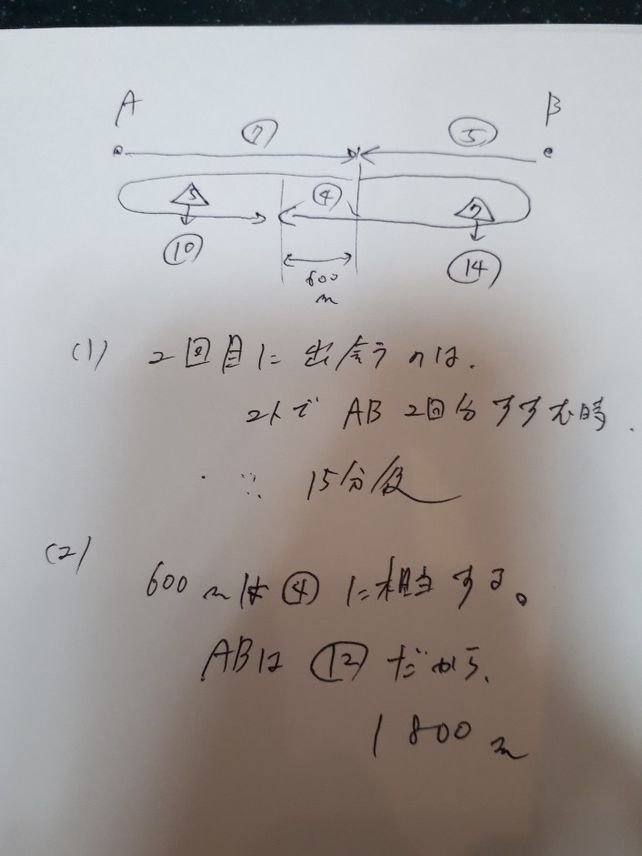 A B
⑦ ⑤
5 ④ 7
⑩ 600 m ⑭
(1) 2回目に出会うのは.
2人で AB 2回分すすむ時.
∴ 15分後
(2) 600 m は ④ に相当する。
ABは ⑫ だから、
1800 m